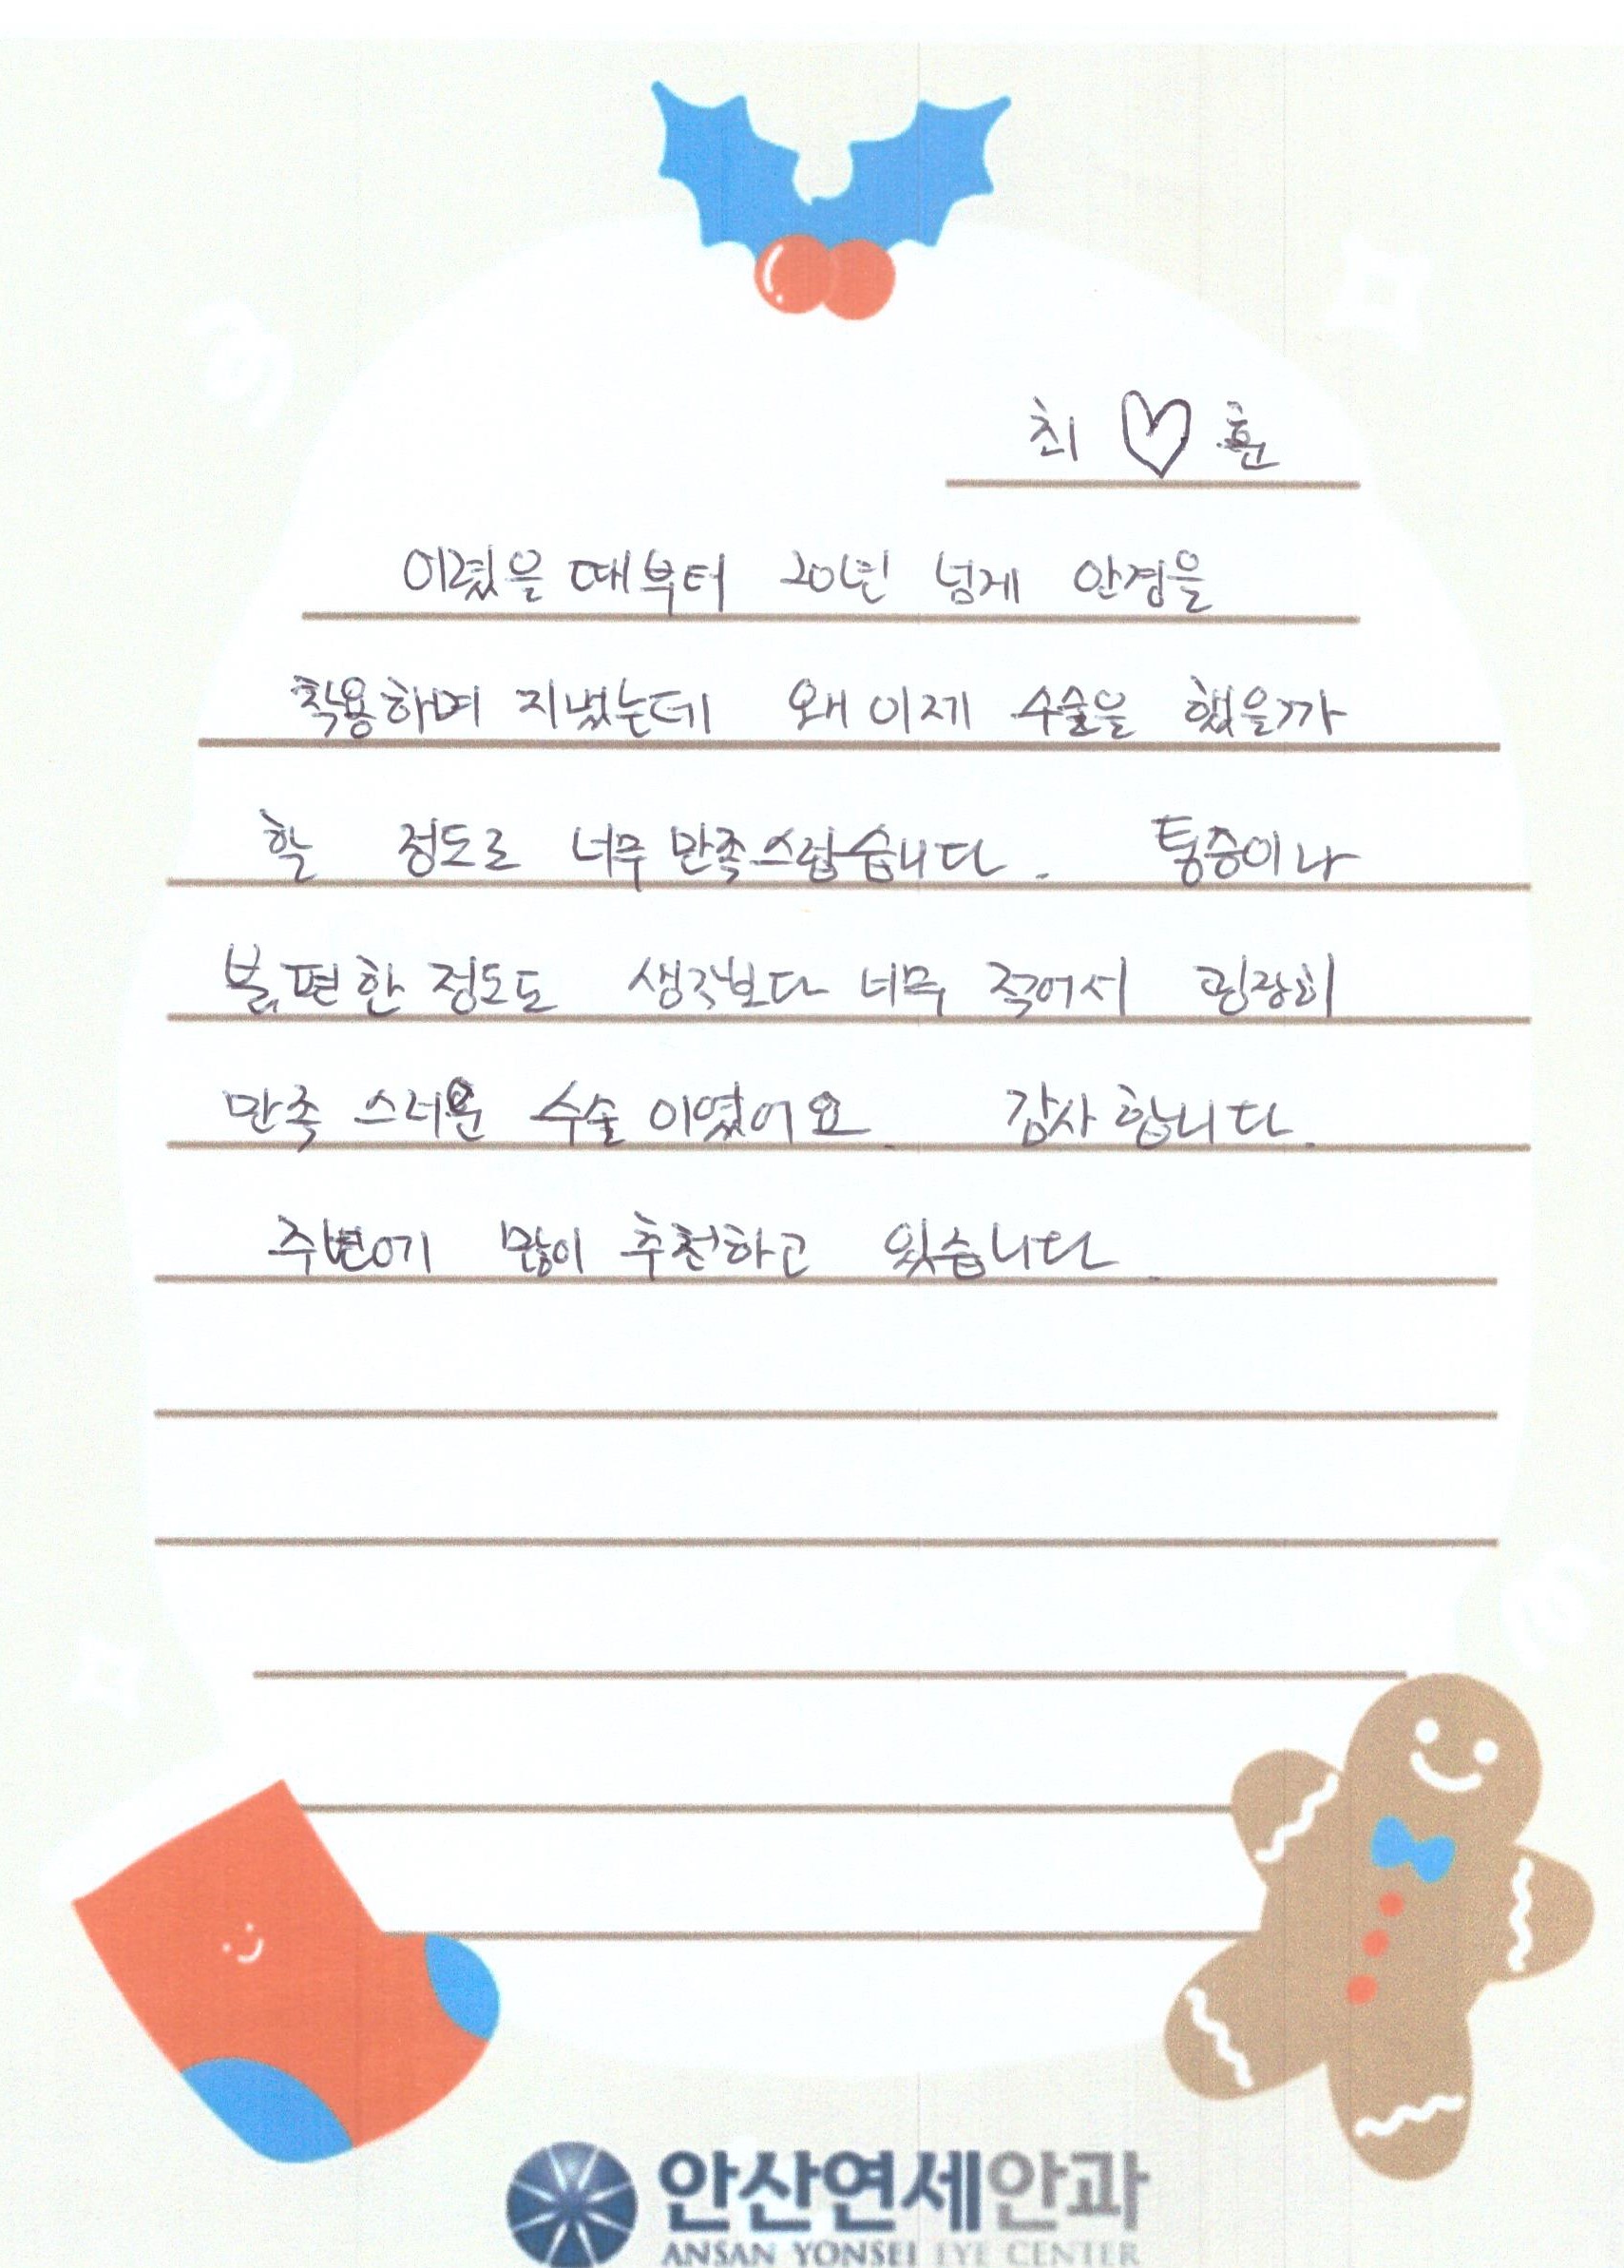 최 ♡ 훈
어렸을 때부터 20년 넘게 안경을
착용하며 지냈는데 왜 이제 수술을 했을까
할 정도로 너무 만족스럽습니다. 통증이나
불편한 정도도 생각보다 너무 적어서 굉장히
만족 스러운 수술 이였어요. 감사합니다.
주변에 많이 추천하고 있습니다.
안산연세안과
ANSAN YONSEI EYE CENTER